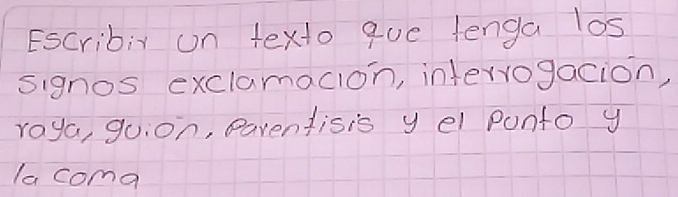 Escribir un texto que tenga los
signos exclamación, interrogación,
raya, guion, parentisis y el punto y
la coma